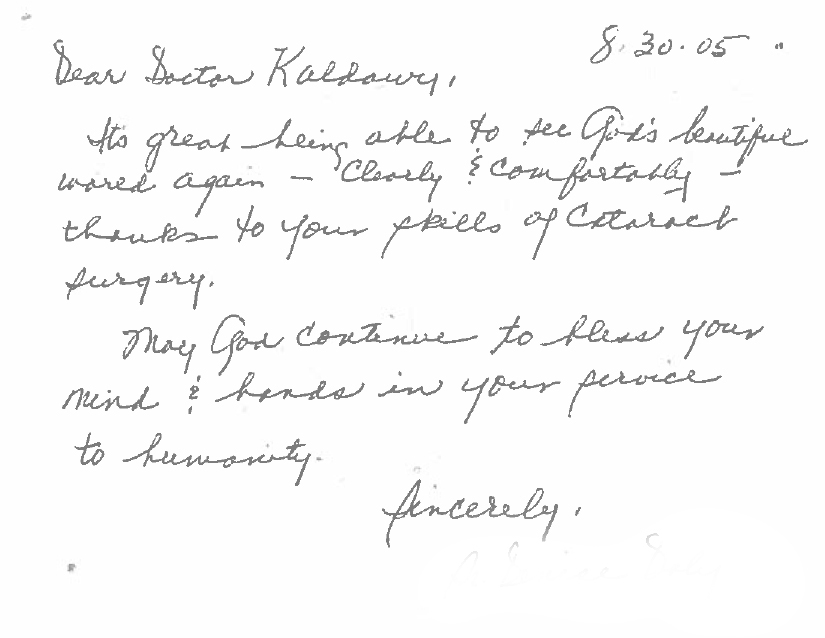 8.30.05
Dear Doctor Kaldawy,
Its great being able to see God's beautiful
world again – Clearly & comfortably –
thanks to your skills of Cataract
surgery.
May God continue to bless your
mind & hands in your service
to humanity.
Sincerely,